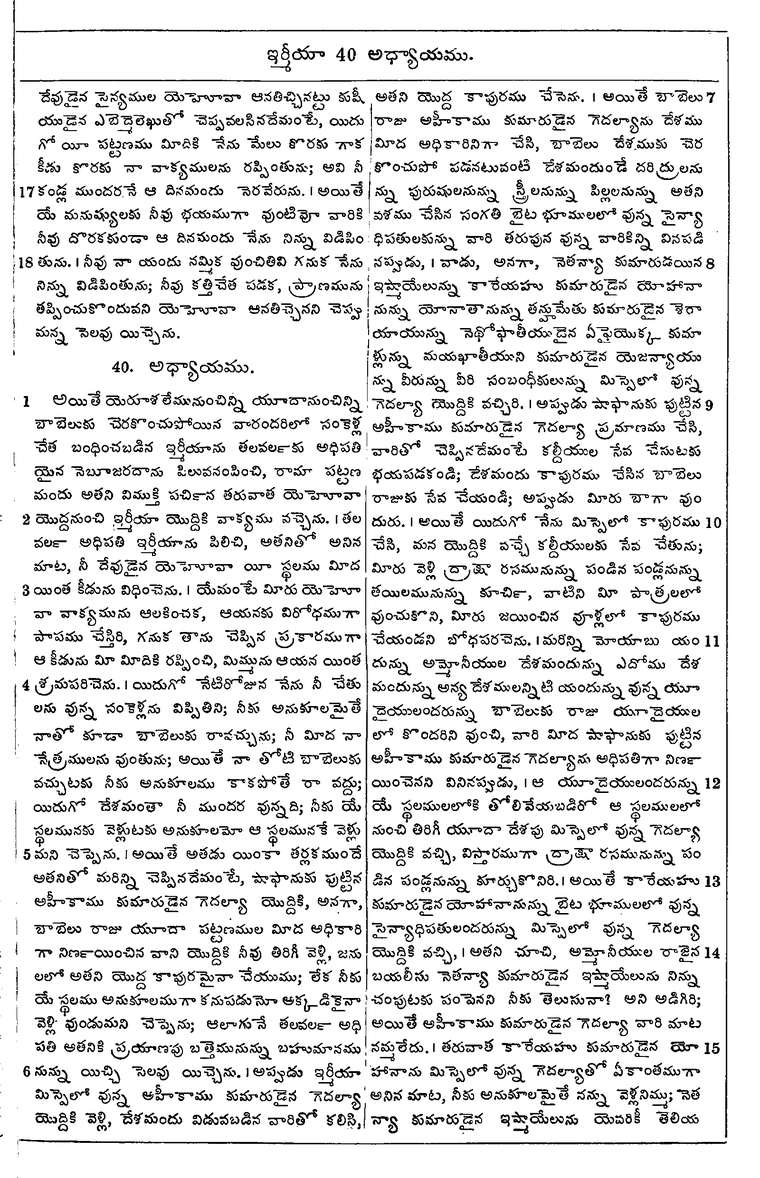 ఇర్మీయా 40 అధ్యాయము.
దేవుడైన సైన్యముల యెహోవా ఆనతిచ్చినట్టు కుషీ
యుడైన ఎబెద్మెలెఖుతో చెప్పవలసినదేమంటే, యిదు
గో యీ పట్టణము మీదికి నేను మేలు కొరకు గాక
కీడు కొరకు నా వాక్యములను రప్పింతును; అవి నీ
17 కండ్ల ముందరనే ఆ దినమందు నెరవేరును. । అయితే
యే మనుష్యులకు నీవు భయముగా వుంటివో వారికి
నీవు దొరకకుండా ఆ దినమందు నేను నిన్ను విడిపిం
18 తును. । నీవు నా యందు నమ్మిక వుంచితివి గనుక నేను
నిన్ను విడిపింతును; నీవు కత్తిచేత పడక, ప్రాణమును
తప్పించుకొందువని యెహోవా ఆనతిచ్చెనని చెప్పు
మన్న సెలవు యిచ్చెను.
40. అధ్యాయము.
1 అయితే యెరూశలేమునుంచిన్ని యూదానుంచిన్ని
బాబెలుకు చెరకొంచుపోయిన వారందరిలో సంకెళ్ల
చేత బంధించబడిన ఇర్మీయాను తలవర్లకు అధిపతి
యైన నెబూజరదాను పిలువనంపించి, రామా పట్టణ
మందు అతని విముక్తి పర్చిన తరువాత యెహోవా
2 యొద్దనుంచి ఇర్మీయా యొద్దికి వాక్యము వచ్చెను. । తల
వర్ల అధిపతి ఇర్మీయాను పిలిచి, అతనితో అనిన
మాట, నీ దేవుడైన యెహోవా యీ స్థలము మీద
3 యింత కీడును విధించెను. । యేమంటే మీరు యెహో
వా వాక్యమును ఆలకించక, ఆయనకు విరోధముగా
పాపము చేస్తిరి, గనుక తాను చెప్పిన ప్రకారముగా
ఆ కీడును మీ మీదికి రప్పించి, మిమ్మును ఆయన యింత
4 శ్రమపరిచెను. । యిదుగో నేటిరోజున నేను నీ చేతు
లను వున్న సంకెళ్లను విప్పితిని; నీకు అనుకూలమైతే
నాతో కూడా బాబెలుకు రావచ్చును; నీ మీద నా
నేత్రములను వుంతును; అయితే నా తోటి బాబెలుకు
వచ్చుటకు నీకు అనుకూలము కాకపోతే రా వద్దు;
యిదుగో దేశమంతా నీ ముందర వున్నది; నీకు యే
స్థలమునకు వెళ్లుటకు అనుకూలమో ఆ స్థలమునకే వెళ్లు
5 మని చెప్పెను. । అయితే అతడు యింకా తర్లకముందే
అతనితో మరిన్ని చెప్పినదేమంటే, షాఫానుకు పుట్టిన
అహీకాము కుమారుడైన గెదల్యా యొద్దికి, అనగా,
బాబెలు రాజు యూదా పట్టణముల మీద అధికారి
గా నిర్ణయించిన వాని యొద్దికి నీవు తిరిగీ వెళ్లి, జను
లలో అతని యొద్ద కాపురమైనా చేయుము; లేక నీకు
యే స్థలము అనుకూలముగా కనుపడునో అక్కడికైనా
వెళ్లి వుండుమని చెప్పెను; అలాగునే తలవర్ల అధి
పతి అతనికి ప్రయాణపు బత్తెమునున్ను బహుమానము
6 నున్ను యిచ్చి సెలవు యిచ్చెను. । అప్పుడు ఇర్మీయా
మిస్పెలో వున్న అహీకాము కుమారుడైన గెదల్యా
యొద్దికి వెళ్లి, దేశమందు విడువబడిన వారితో కలిసి,
అతని యొద్ద కాపురము చేసెను. । అయితే బాబెలు 7
రాజు అహీకాము కుమారుడైన గెదల్యాను దేశము
మీద అధికారినిగా చేసి, బాబెలు దేశముకు చెర
కొంచుపో పడనటువంటి దేశమందుండే దరిద్రులను
న్ను పురుషులనున్ను స్త్రీలనున్ను పిల్లలనున్ను అతని
వశము చేసిన సంగతి బైట భూములలో వున్న సైన్యా
ధిపతులకున్ను వారి తరుఫున వున్న వారికిన్ని వినపడి
నప్పుడు, । వాడు, అనగా, నెతన్యా కుమారుడయిన 8
ఇష్మాయేలున్ను కారేయహు కుమారుడైన యోహానా
నున్ను యోనాతానున్ను తన్హుమేతు కుమారుడైన శెరా
యాయున్ను నెథోఫాతీయుడైన ఏఫైయొక్క కుమా
ళ్లున్ను మయఖాతీయుని కుమారుడైన యెజన్యాయు
న్ను వీరున్ను వీరి సంబంధీకులున్ను మిస్పెలో వున్న
గెదల్యా యొద్దికి వచ్చిరి. । అప్పుడు షాఫానుకు పుట్టిన 9
అహీకాము కుమారుడైన గెదల్యా ప్రమాణము చేసి,
వారితో చెప్పినదేమంటే కల్దీయుల సేవ చేసుటకు
భయపడకండి; దేశమందు కాపురము చేసిన బాబెలు
రాజుకు సేవ చేయండి; అప్పుడు మీరు బాగా వుం
దురు. । అయితే యిదుగో నేను మిస్పెలో కాపురము 10
చేసి, మన యొద్దికి వచ్చే కల్దీయులకు సేవ చేతును;
మీరు వెళ్లి ద్రాక్షా రసమునున్ను పండిన పండ్లనున్ను
తయిలమునున్ను కూర్చి, వాటిని మీ పాత్రలలో
వుంచుకొని, మీరు జయించిన వూళ్లలో కాపురము
చేయండని బోధపరచెను. । మరిన్ని మోయాబు యం 11
దున్ను అమ్మోనీయుల దేశమందున్ను ఎదోము దేశ
మందున్ను అన్య దేశములన్నిటి యందున్ను వున్న యూ
దైయులందరున్ను బాబెలుకు రాజు యూదైయుల
లో కొందరిని వుంచి, వారి మీద షాఫానుకు పుట్టిన
అహీకాము కుమారుడైన గెదల్యాను అధిపతిగా నిర్ణ
యించెనని వినినప్పుడు, । ఆ యూదైయులందరున్ను 12
యే స్థలములలోకి తోలివేయబడిరో ఆ స్థలములలో
నుంచి తిరిగీ యూదా దేశపు మిస్పెలో వున్న గెదల్యా
యొద్దికి వచ్చి, విస్తారముగా ద్రాక్షా రసమునున్ను పం
డిన పండ్లనున్ను కూర్చుకొనిరి. । అయితే కారేయహు 13
కుమారుడైన యోహానానున్ను బైట భూములలో వున్న
సైన్యాధిపతులందరున్ను మిస్పెలో వున్న గెదల్యా
యొద్దికి వచ్చి, । అతని చూచి, అమ్మోనీయుల రాజైన 14
బయలీను నెతన్యా కుమారుడైన ఇష్మాయేలును నిన్ను
చంపుటకు పంపెనని నీకు తెలుసునా? అని అడిగిరి;
అయితే అహీకాము కుమారుడైన గెదల్యా వారి మాట
నమ్మలేదు. । తరువాత కారేయహు కుమారుడైన యో 15
హానాను మిస్పెలో వున్న గెదల్యాతో ఏకాంతముగా
అనిన మాట, నీకు అనుకూలమైతే నన్ను వెళ్లనిమ్ము; నెత
న్యా కుమారుడైన ఇష్మాయేలును యెవరికీ తెలియ